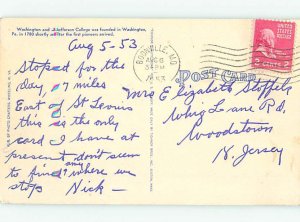 Washington and Jefferson College was founded in Washington,
Pa. in 1780 shortly after the first pioneers arrived.
Aug 5-53
Stopped for the
day, 7 miles
East of St Louis
this is the only
card I have at
present don't seem
to find any where we
stop Nick-
AUG 6
PM
1953
POST CARD
2 CENTS 2
Mrs Elizabeth Stoffels
Whig Lane Rd.
Woodstown
N. Jersey